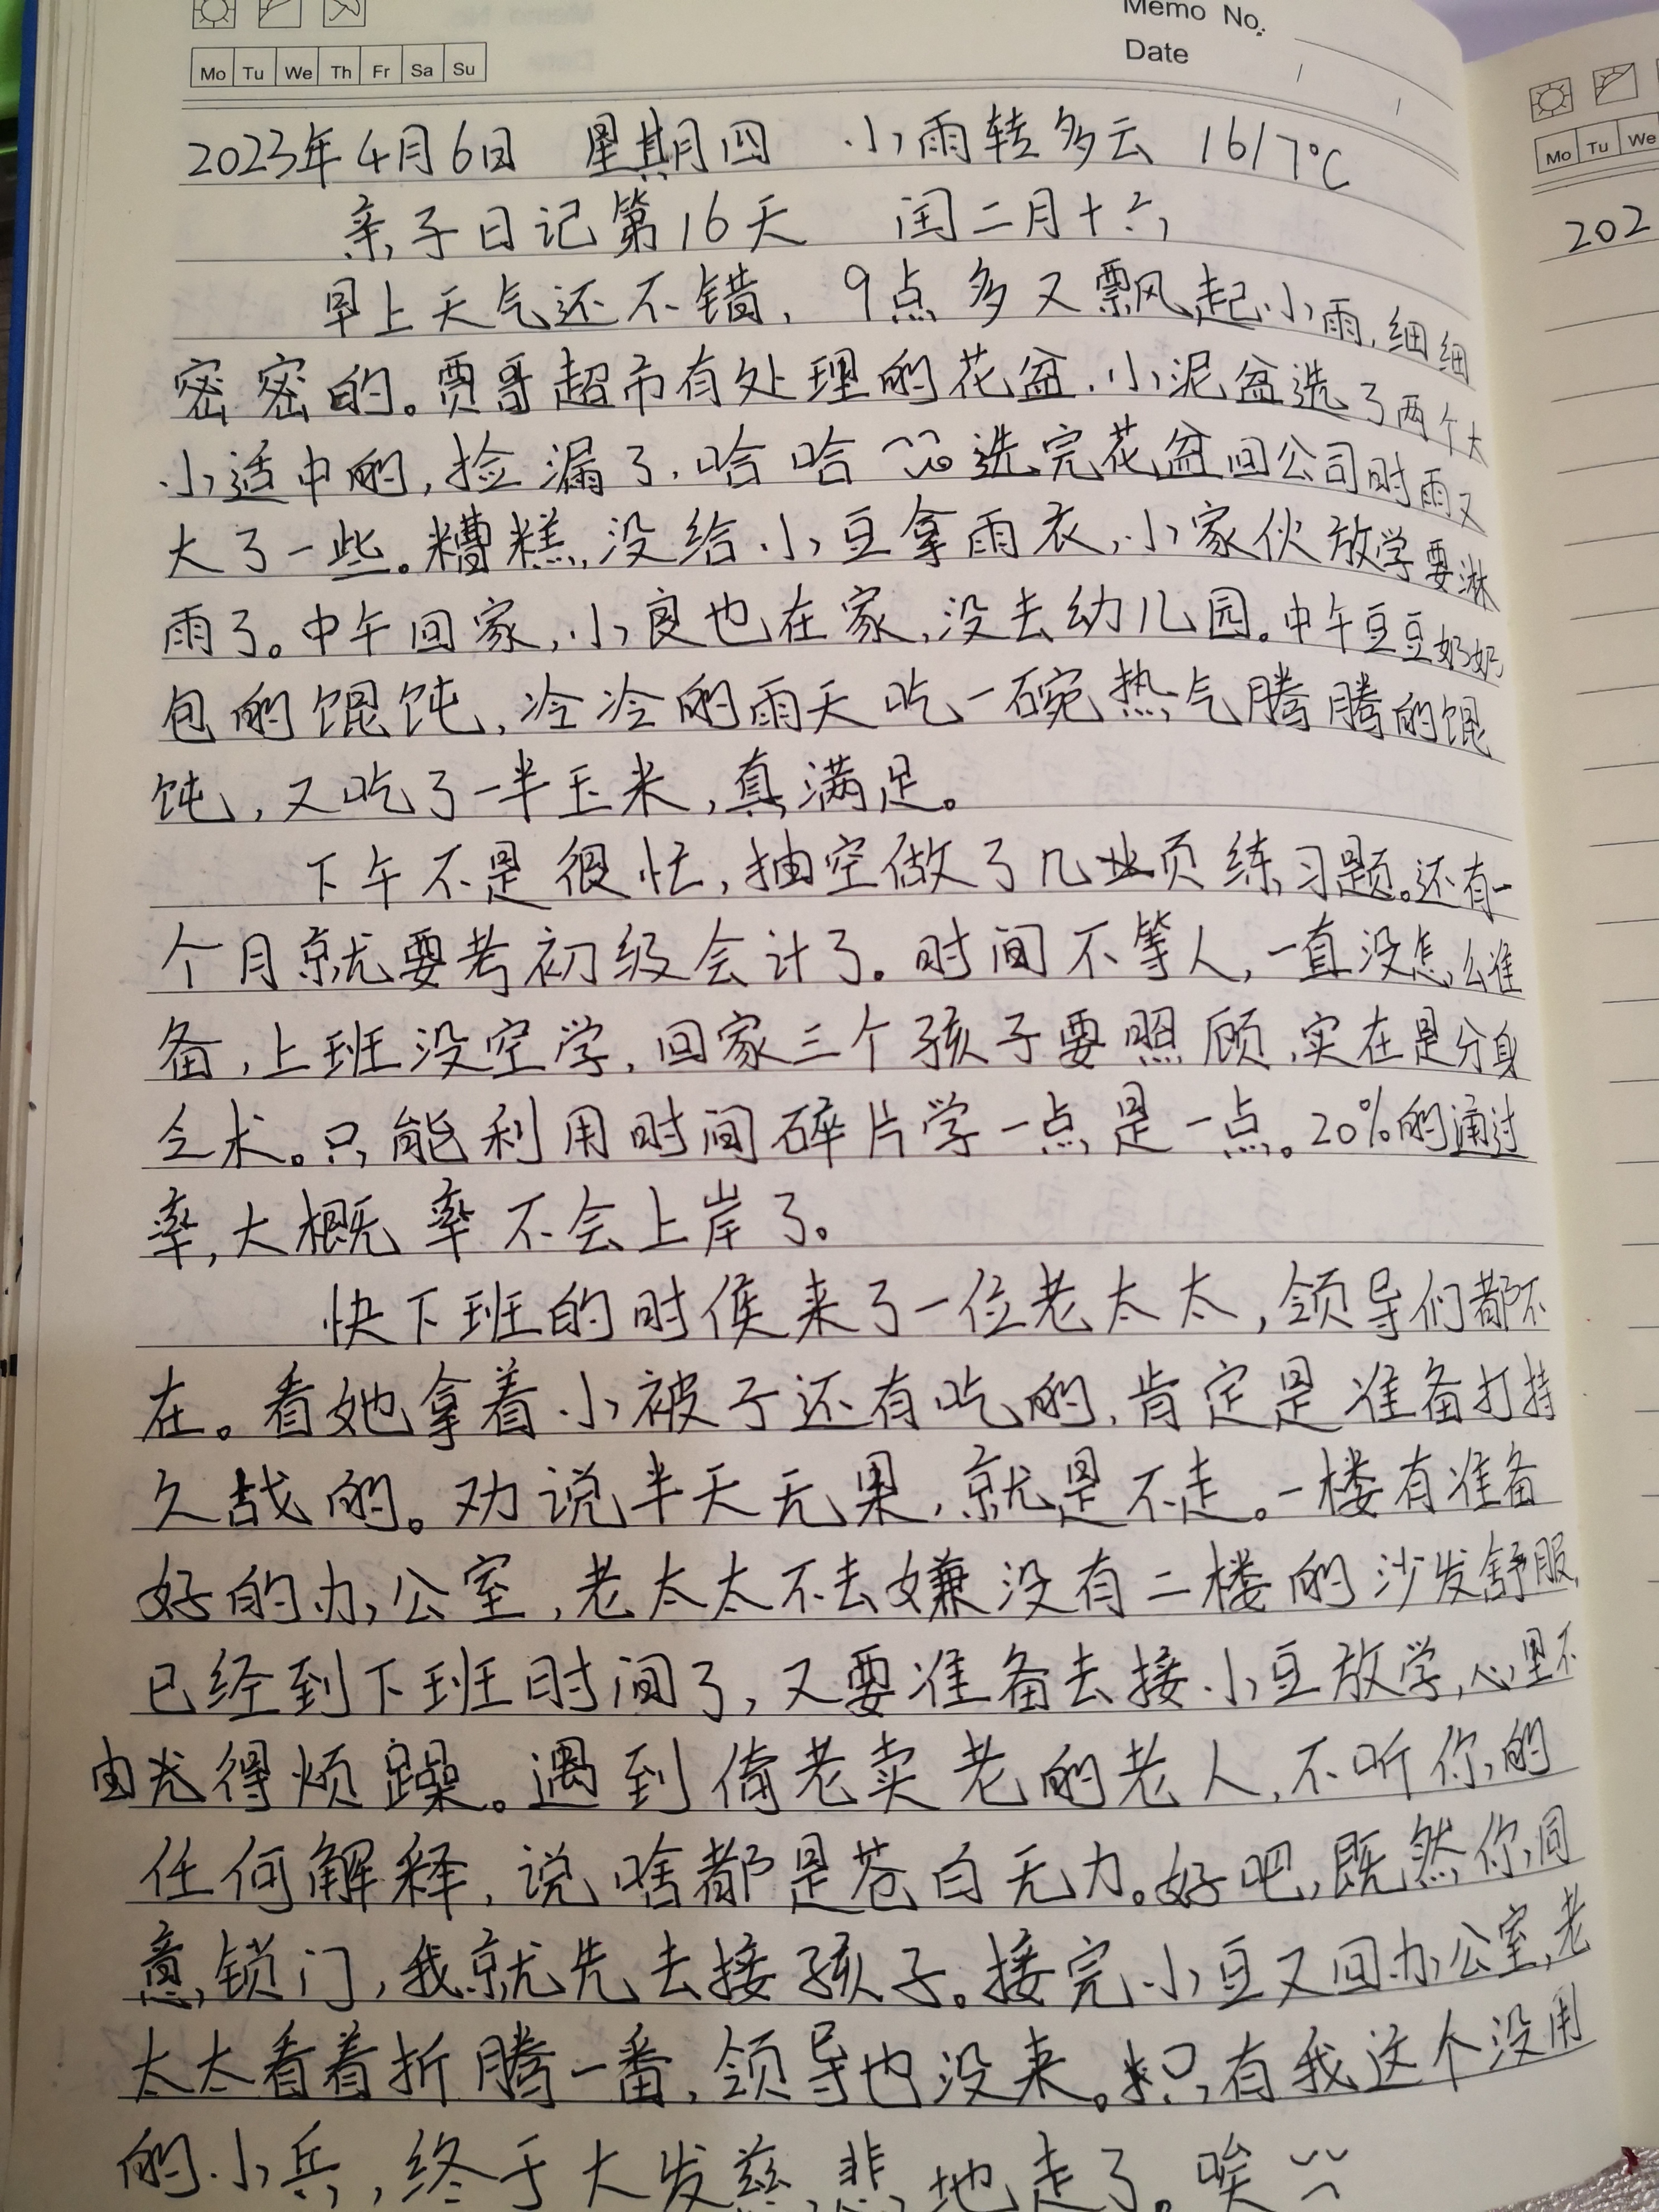 Memo No.
Mo Tu We Th Fr Sa Su
Date
Mo Tu We
2023年4月6日 星期四 小雨转多云 16/7℃
202
亲子日记第16天 闰二月十六
早上天气还不错，9点多又飘起小雨，细细
密密的。贾哥超市有处理的花盆，小泥盆选了两个大
小适中的，捡漏了，哈哈 选完花盆回公司时雨又
大了一些。糟糕，没给小豆拿雨衣，小家伙放学要淋
雨了。中午回家，小良也在家，没去幼儿园。中午豆豆奶奶
包的馄饨，冷冷的雨天吃一碗热气腾腾的馄
饨，又吃了一半玉米，真满足。
下午不是很忙，抽空做了几页练习题。还有一
个月就要考初级会计了。时间不等人，一直没怎么准
备，上班没空学，回家三个孩子要照顾，实在是分身
乏术。只能利用时间碎片学一点是一点。20%的通过
率，大概率不会上岸了。
快下班的时候来了一位老太太，领导们都不
在。看她拿着小被子还有吃的，肯定是准备打持
久战的。劝说半天无果，就是不走。一楼有准备
好的办公室，老太太不去嫌没有二楼的沙发舒服，
已经到下班时间了，又要准备去接小豆放学，心里不
由光得烦躁。遇到倚老卖老的老人，不听你的
任何解释，说啥都是苍白无力。好吧，既然你同
意锁门，我就先去接孩子。接完小豆又回办公室，老
太太看着折腾一番，领导也没来。只有我这个没用
的小兵，终于大发慈悲地走了。唉